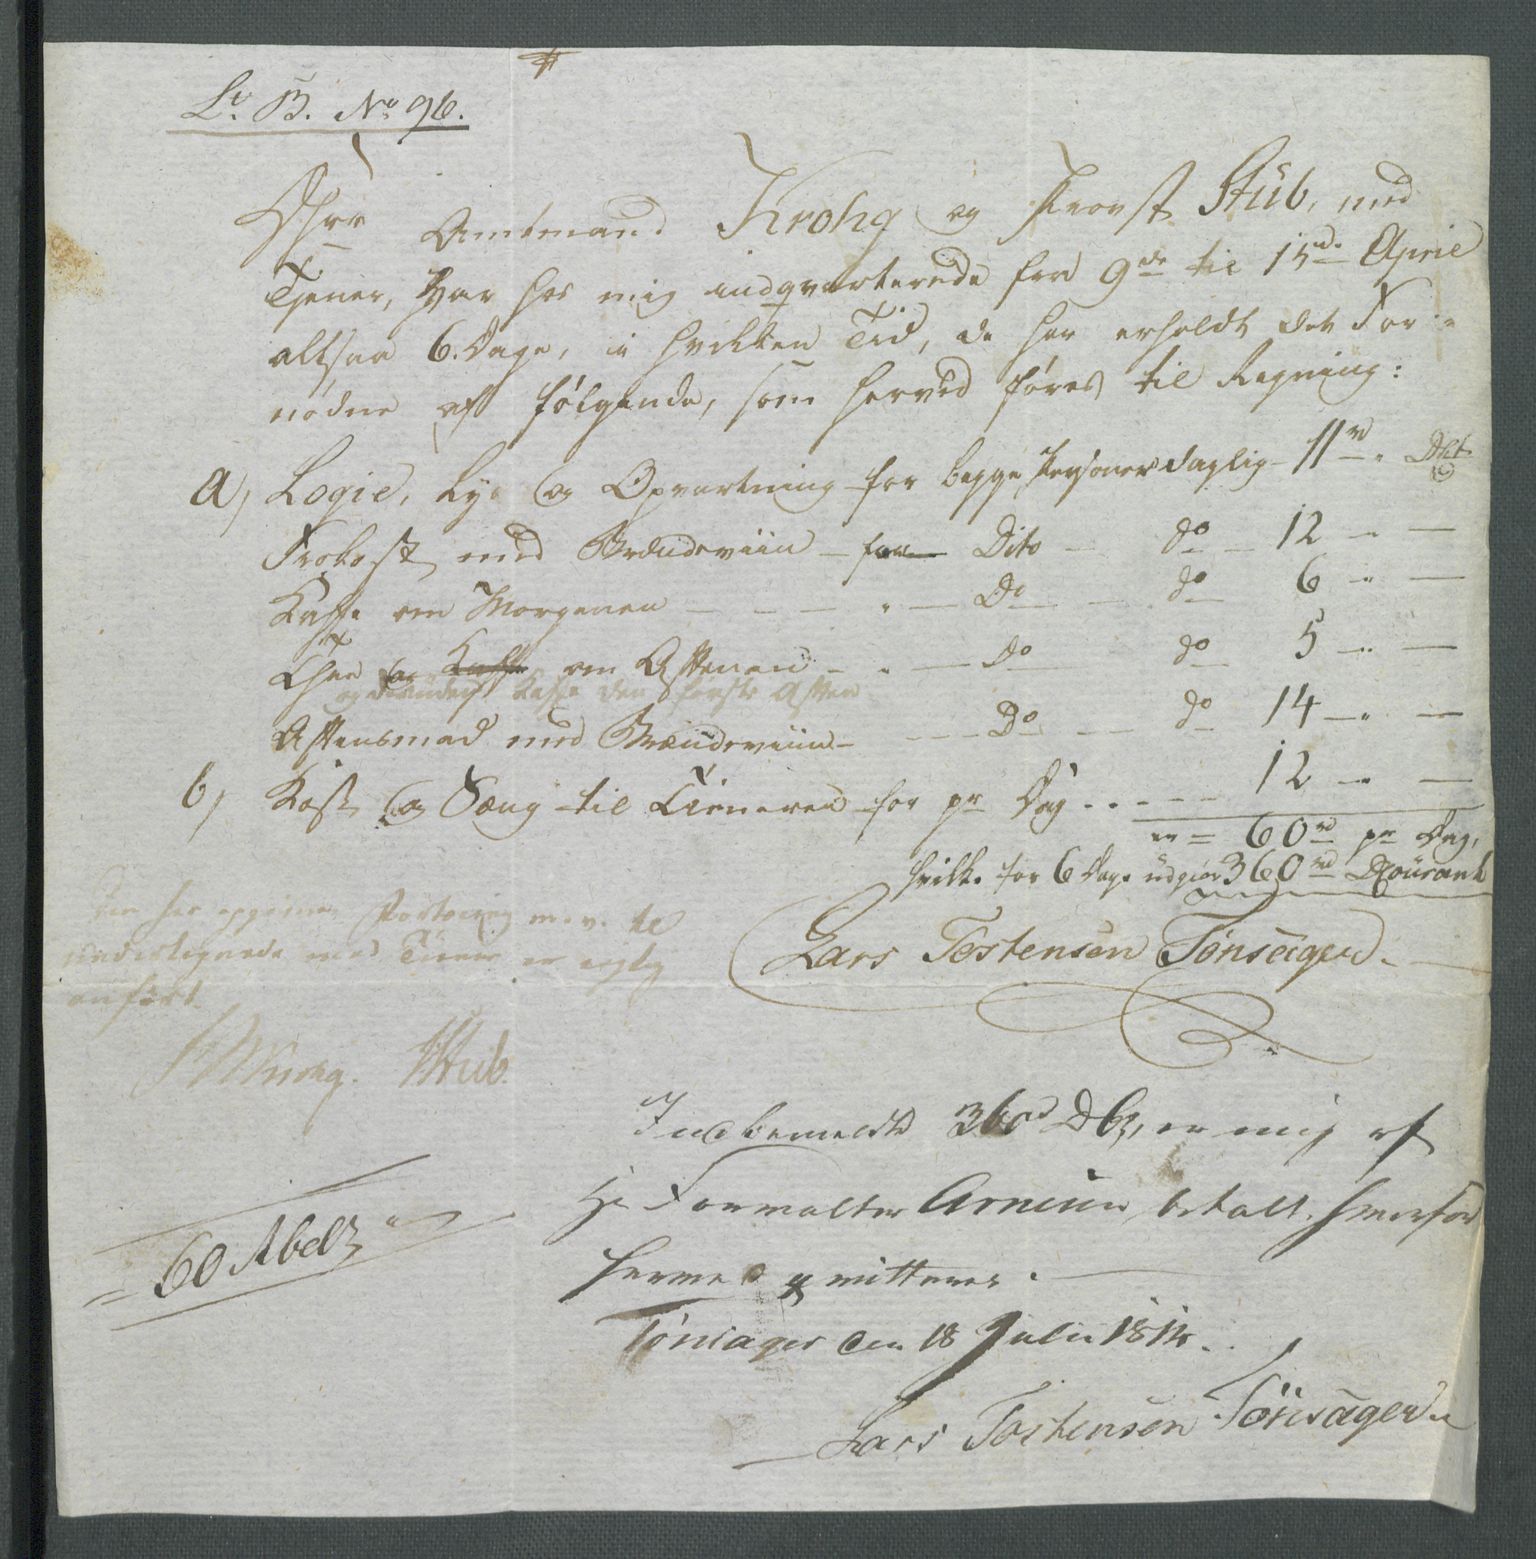 Lr. B. No 96.
Hrr Amtmand Krohg og Provst Stub, med
Tjener, Har hos mig indqvarterede fra 9de til 15de April
altsaa 6. Dage, i hvilken Tid, de har erholdt det For-
nødne af følgende, som herved føres til Regning:
a) Logie, Lys og Opvartning for begge Personer daglig 11rd
Frokost med Brændeviin for Dito do 12 " —
Kaffe om Morgenen — — " — Do do 6 " —
Thee og Kaffe om Aftenen — " — Do do 5 " —
Kaffe den første Aften
Aftensmad med Brændeviin — — Do — do 14 " —
b) Kost og Sæng til Tieneren for pr Dag . . . . 12 " —
er = 60rd pr Dag,
hvilke for 6 Dage udgiør 360rd DCourant
Lars Tostensen Tønsager
Den her opgivne Fortæring m. v. til
undertegnede med Tiener er rigtig
anført.
Krohg. Stub.
Indbemeldte 360rd DC, er mig af
Hr Forvalter Arneun betalt, hvorfor
herved qvitteres.
Tønsager den 18 Julii 1814.
Lars Tostensen Tønsager
60 Rbdlr